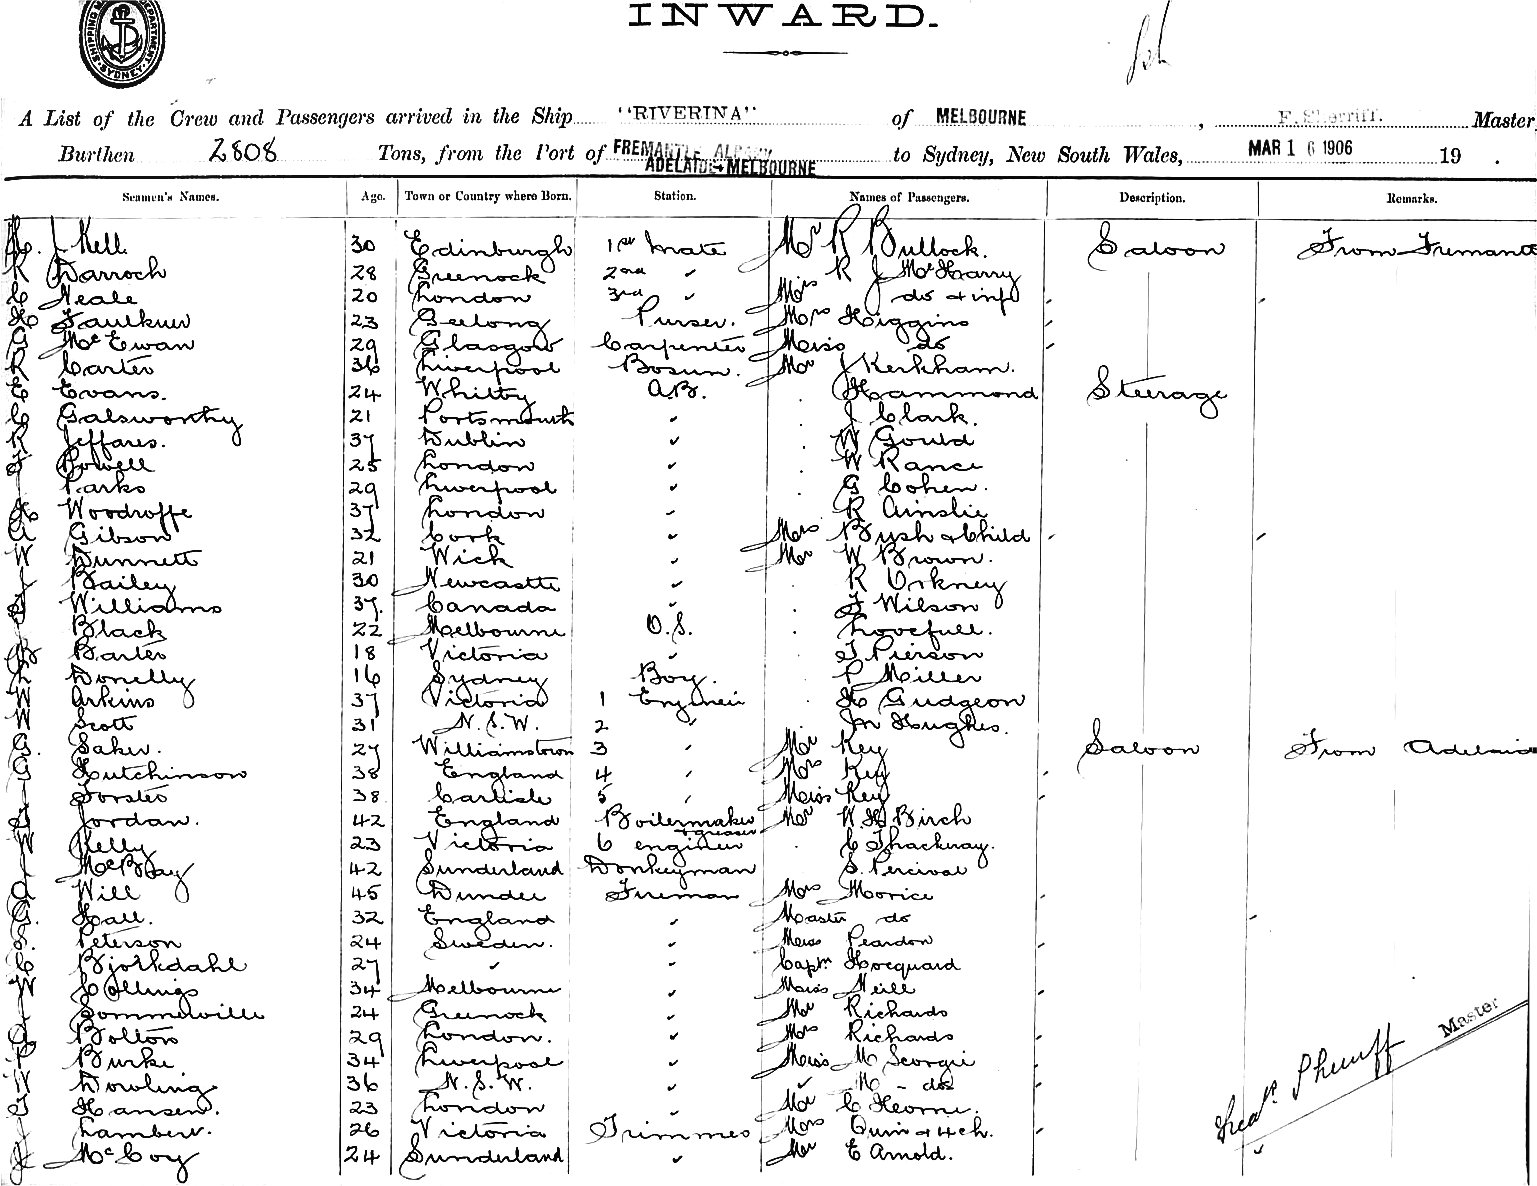 SHIPPING MASTER'S DEPARTMENT SYDNEY
INWARD.
A List of the Crew and Passengers arrived in the Ship "RIVERINA" of MELBOURNE, F. Sherriff. Master
Burthen 2808 Tons, from the Port of FREMANTLE ALBANY ADELAIDE + MELBOURNE to Sydney, New South Wales, MAR 16 1906 19 .
Seamen's Names. Age. Town or Country where Born. Station. Names of Passengers. Description. Remarks.
J Kell 30 Edinburgh 1st Mate Mr R Bullock. Saloon From Fremantle
R Darroch 28 Greenock 2nd " R J McHarry
C Neale 20 London 3rd " Mrs do & inft
H Faulkner 23 Geelong Purser. Mrs Higgins
G McEwan 29 Glasgow Carpenter Miss do
R Carter 36 Liverpool Bosun. Mr J Kerkham.
E Evans. 24 Whitby A.B. Hammond Steerage
C Galsworthy 21 Portsmouth " J Clark.
R Jeffares. 37 Dublin " W Gould
Powell 25 London " W Rance
Parks 29 Liverpool " G Cohen.
H Woodroffe 37 London " R Ainslie
A Gibson 32 Cork " Mrs Bush & Child
W Dunnett 21 Wick " Mr W Brown.
Bailey 30 Newcastle " R Orkney
Williams 37. Canada " J Wilson
Black 22 Melbourne O.S. Lovefull.
Barter 18 Victoria " J Pierson
Donelly 16 Sydney Boy. P Miller
W Arkins 37 Victoria 1 Engineer H Gudgeon
W Scott 31 N.S.W. 2 " Jn Hughes.
G. Saker. 27 Williamstown 3 " Mr Key Saloon From Adelaide
G Hutchinson 38 England 4 " Mrs Key
Forster 38 Carlisle 5 " Miss Key
Jordan. 42 England Boilermaker & greaser Mr W.H. Birch
W Kelly 23 Victoria 6 engineer C Thackway.
McBay 42 Sunderland Donkeyman S. Percival
Will 45 Dundee Fireman Mrs Morice
G. Hall. 32 England " Master do
Peterson 24 Sweden. " Miss Peardon
C Bjorkdahl 27 " " Captn Hocquard
W Collings 34 Melbourne " Miss Neill
Sommerville 24 Greenock " Mr Richards
Bolton 29 London. " Mrs Richards
P Burke. 34 Liverpool " Miss M Scorgie
Dowling 36 N.S.W. " " M - do
Hansen. 23 London " Mr C Hearne.
Lambert. 26 Victoria Trimmer Mrs Quin & 4 ch.
J McCoy 24 Sunderland " Mr E Arnold.
Fredk Sherriff Master